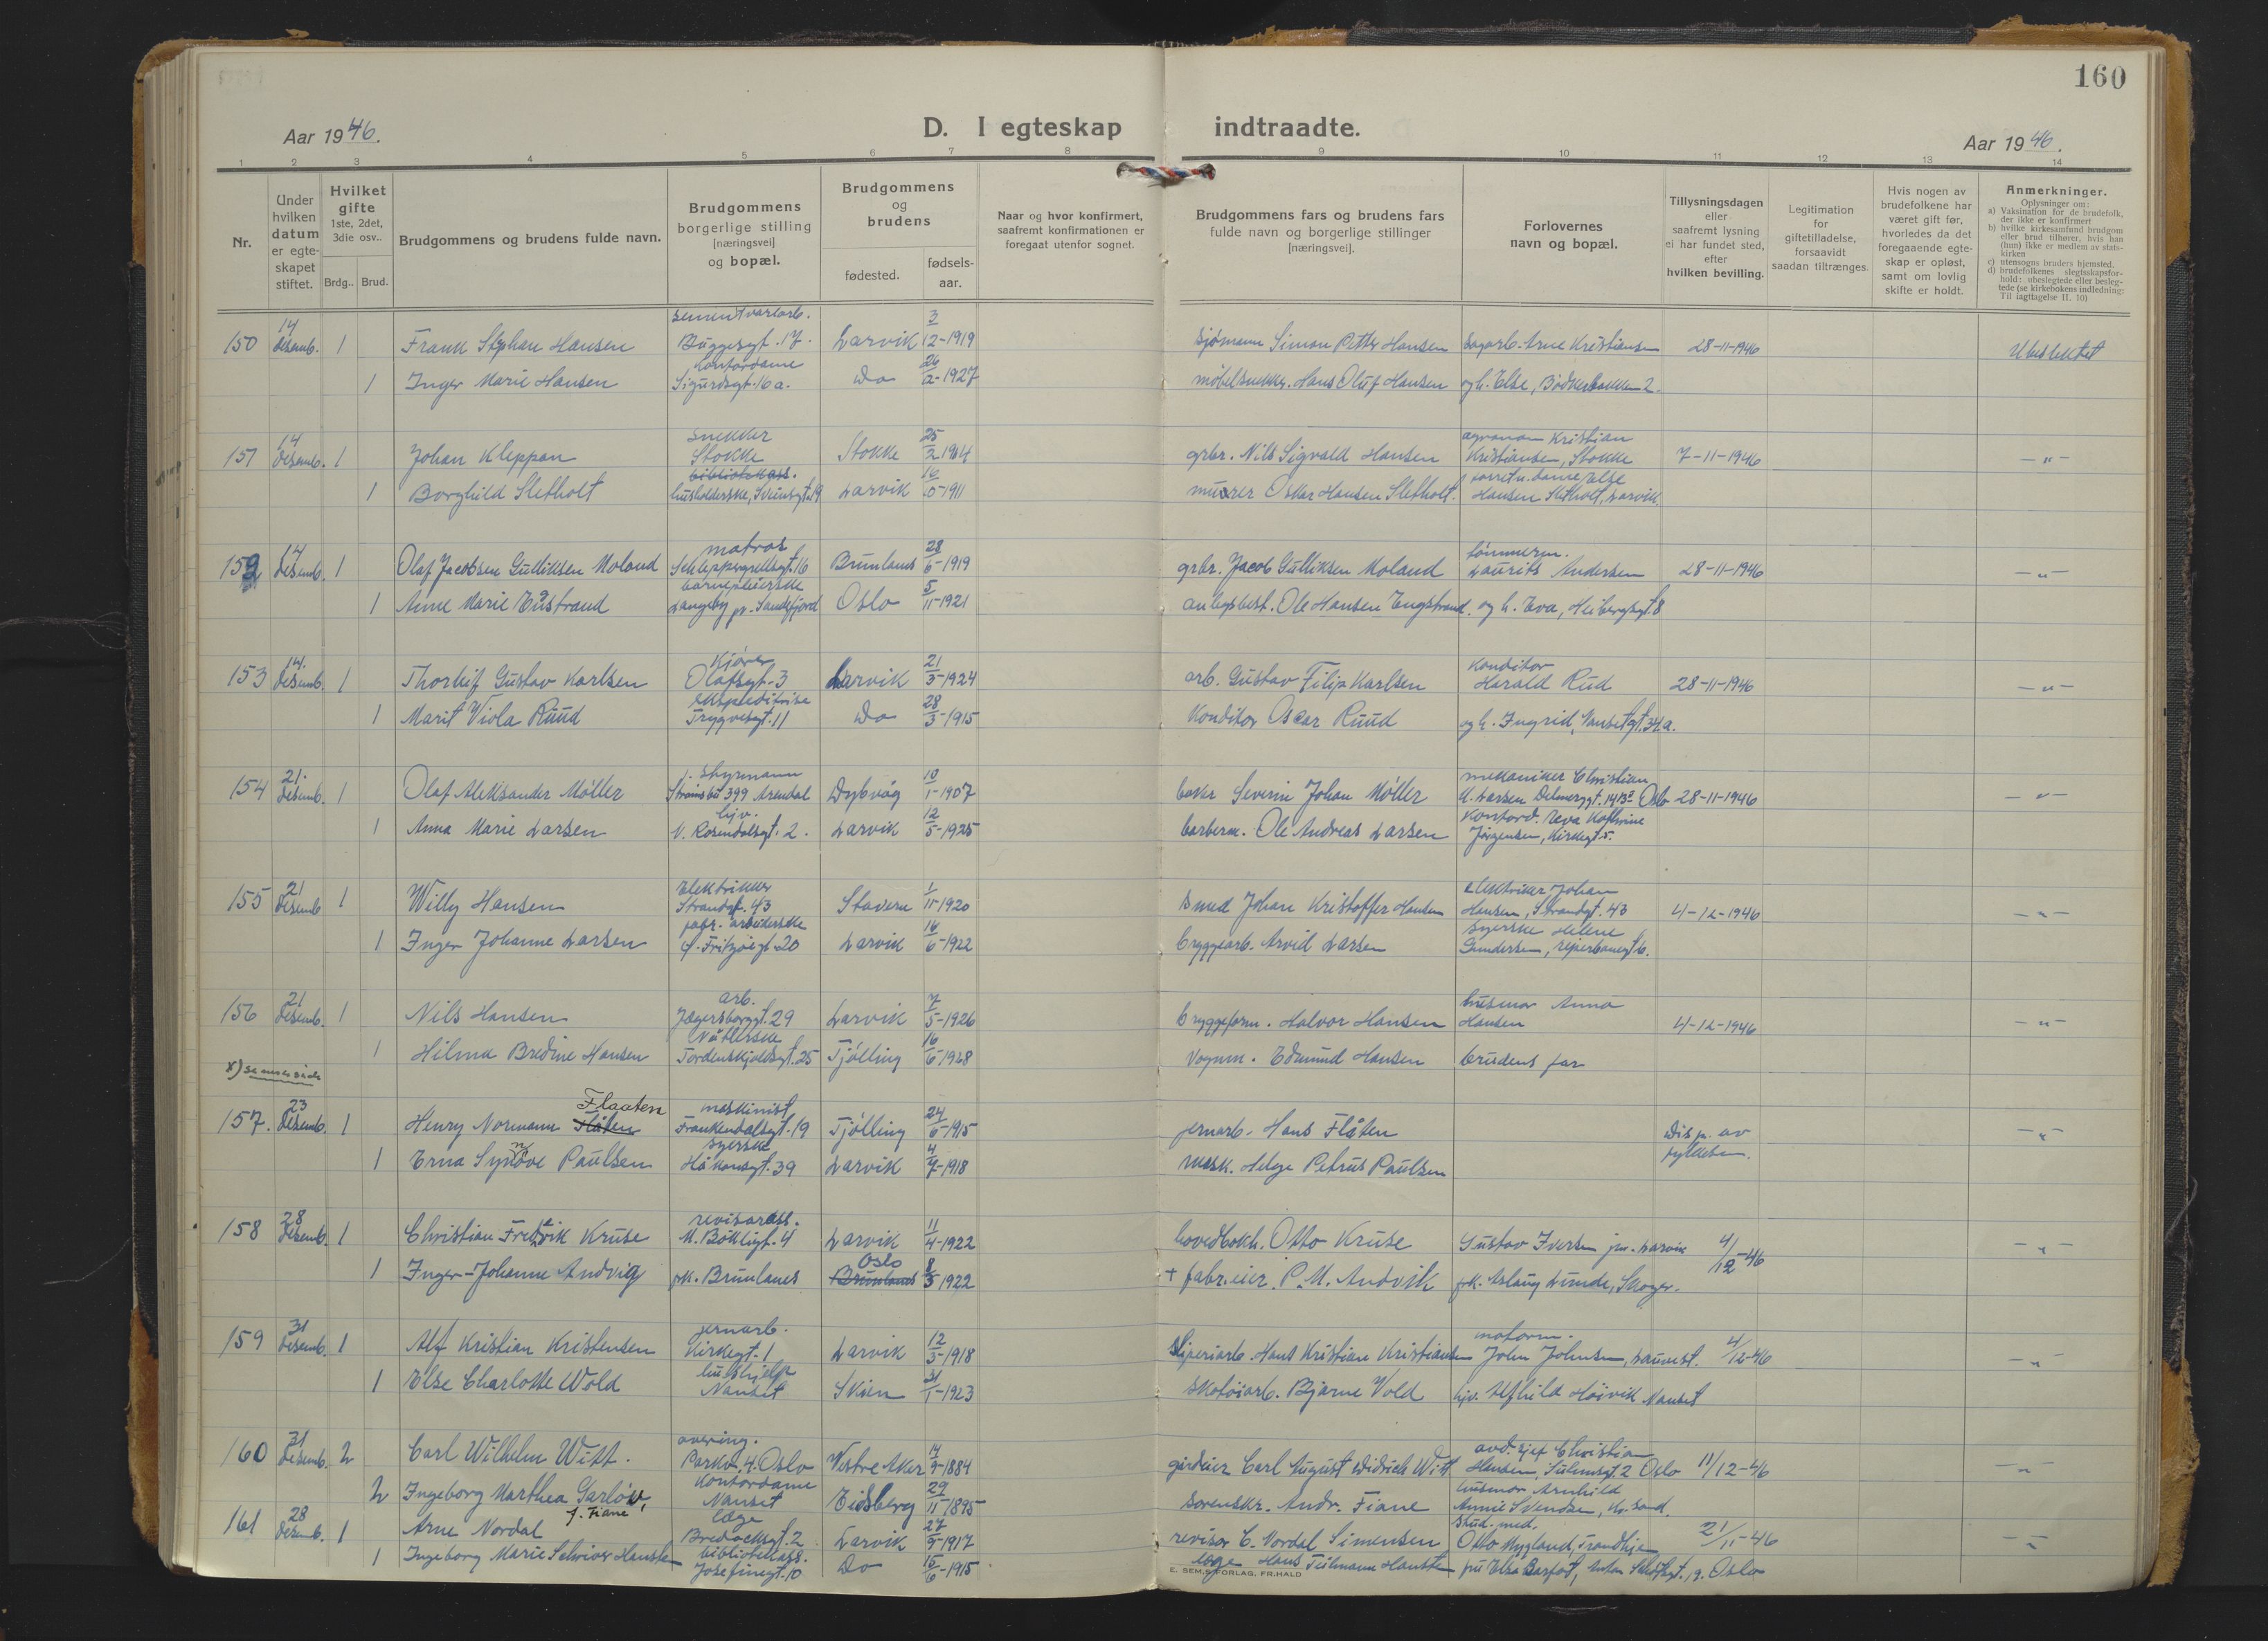 160
Aar 1946.
D. I egteskap indtraadte.
Aar 1946.
1 2 3 4 5 6 7 8 9 10 11 12 13 14
Nr.
Under hvilken datum er egte-skapet stiftet.
Hvilket gifte 1ste, 2det, 3die osv..
Brdg.. Brud.
Brudgommens og brudens fulde navn.
Brudgommens borgerlige stilling [næringsvei] og bopæl.
Brudgommens og brudens
fødested. fødsels-aar.
Naar og hvor konfirmert, saafremt konfirmationen er foregaat utenfor sognet.
Brudgommens fars og brudens fars fulde navn og borgerlige stillinger [næringsvei].
Forlovernes navn og bopæl.
Tillysningsdagen eller saafremt lysning ei har fundet sted, efter hvilken bevilling.
Legitimation for giftetilladelse, forsaavidt saadan tiltrænges.
Hvis nogen av brudefolkene har været gift før, hvorledes da det foregaaende egte-skap er opløst, samt om lovlig skifte er holdt.
Anmerkninger.
Oplysninger om:
a) Vaksination for de brudefolk, der ikke er konfirmert
b) hvilke kirkesamfund brudgom eller brud tilhører, hvis han (hun) ikke er medlem av stats-kirken
c) utensogns bruders hjemsted.
d) brudefolkenes slegtsskapsfor-hold: ubeslegtede eller besleg-tede (se kirkebokens indledning: Til iagttagelse II. 10)
sementvarearb. 3
150 14 desemb. 1 Frank Stephan Hansen Buggesgt. 17. Larvik 12-1919 sjømann Simon Petter Hansen sagarb. Arne Kristiansen 28-11-1946 Ubeslektet
kontordame 26
1 Inger Marie Hansen Sigurdsgt. 16a. Do 2-1927 møbelsnekker. Hans Oluf Hansen og h. Else, Bødkerbakken 2.
snekker 25 agronom Kristian
151 14 desemb. 1 Johan Kleppan Stokke Stokke 2 1904 grbr. Nils Sigvald Hansen Kristiansen, Stokke 7-11-1946 -"-
bibliotekass. 16
1 Borghild Sletholt husholderske, Sveinsgt. 19 Larvik 10-1911 murer Oskar Hansen Sletholt. Hansen Sletholt, Larvik.
matros 28 tømmerm.
152 14 desemb. 1 Olaf Jacobsen Gulliksen Moland Schleppegrellsgt. 16 Brunlanes 6-1919 grbr. Jacob Gulliksen Moland Laurits Andersen 28-11-1946 -"-
barnepleierske 5
1 Anne Marie Engstrand Langeby pr. Sandefjord Oslo 11-1921 anlegsbest. Ole Hansen Engstrand. og h. Eva, Heibergsgt. 8
kjører 21 konditor
153 14. desemb. 1 Thorleif Gustav Karlsen Olafsgt. 3 Larvik 3-1924 arb. Gustav Filip Karlsen Harald Rud 28-11-1946 -"-
ekspeditrise 28
1 Marit Viola Ruud Trygvesgt. 11 Do 3-1915 Konditor Oscar Ruud og h. Ingrid, Nansetgt. 34a.
1. styrmann 10 mekaniker Christian
154 21. desemb. 1 Olaf Aleksander Møller Strømsbu 399 Arendal Dybvåg 1-1907 baker Severin Johan Møller Oslo 28-11-1946 -"-
hjv. 12
1 Anna Marie Larsen N. Rosendalsgt. 2. Larvik 5-1925 barberm. Ole Andreas Larsen Jørgensen, Kirkegt. 5.
elektriker 1 elektriker Johan
155 21 desemb 1 Willy Hansen Strandgt. 43 Stavern 11-1920 smed Johan Kristoffer Hansen Hansen, Strandgt. 43 4-12-1946 -"-
fabr. arbeiderske 16 syerske Helene
1 Inger Johanne Larsen Ø. Fritzøegt. 20 Larvik 6-1922 bryggearb. Arvid Larsen Gundersen, reperbanegt 6.
arb. 7 husmor Anna
156 21 desemb. 1 Nils Hansen Jegersborggt. 29 Larvik 5-1926 bryggeform. Halvor Hansen Hansen 4-12-1946 -"-
16
1 Hilma Bredine Hansen Tordenskjoldsgt. 25 Tjølling 6-1928 vognm. Edmund Hansen brudens far
x) se neste side
Flaaten maskinist 24
157. 23 desemb. 1 Henry Normann Flåten Frankendalsgt. 19 Tjølling 6-1915 jernarb. Hans Flåten Disp. av fylkesm. -"-
syerske 4
1 Erna Synnøve Paulsen Håkonsgt. 39 Larvik 7-1918 mask. Helge Petrus Paulsen
revisorass. 11
158 28 desemb. 1 Christian Fredrik Kruse M. Bøkligt. 4 Larvik 4-1922 hovedbokh. Otto Kruse Gustav Iversen jun. Larvik 4/12-46 -"-
Oslo 8
1 Inger-Johanne Andvig frk. Brunlanes Brunlanes 3 1922 + fabr.eier. P. M. Andvik frk. Aslaug Lunde, Skoger.
jernarb. 12 motorm.
159 31 desemb. 1 Alf Kristian Kristensen Kirkegt. 1 Larvik 3-1918 sliperiarb. Hans Kristian Kristiansen John Johnsen, 4/12-46 -"-
hushjelp 31
1 Else Charlotte Wold Nanset Skien 1-1923 skotøiarb. Bjarne Vold hjv. Alfhild Høivik Nanset
overing. 14 avd. sjef Christian
160 31 desemb. 2 Carl Wilhelm Witt. Parkv. 4. Oslo Vestre Aker 9-1884 gårdeier Carl August Didrich Witt Hansen, Oslo 11/12-46 -"-
kontordame 29 husmor Arnhild
2 Ingeborg Marthea Garløv, f. Fiane Nanset Eidsberg 11 1895 sorenskr. Andr. Fiane Annie Svendsen, Kr. sand.
læge 27 stud. med.
161 28 desemb. 1 Arne Nordal Bredochsgt. 2 Larvik 9-1917 revisor C. Nordal Simensen Otto Mygland, Trondhjem 21/11-46 -"-
bibliotekass. 15
1 Ingeborg Marie Schriver Hanste Josefinegt. 10 Do 6-1915 læge Hans Teilmann Hanste fru Elsa Barfot, Anton Schjøthsgt. 19. Oslo
E. SEM.S FORLAG, FR.HALD